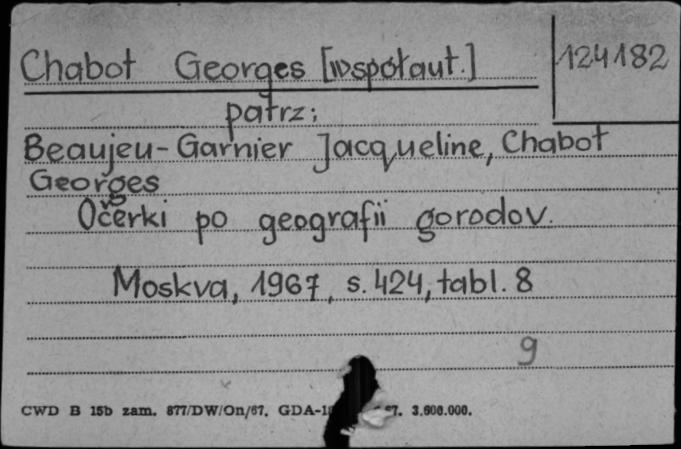 Chabot Georges [współaut.]
124182
patrz:
Beaujeu-Garnier Jacqueline, Chabot
Georges
Očerki po geografii gorodov.
Moskva, 1967, s. 424, tabl. 8
9
CWD B 15b zam. 877/DW/On/67. GDA-1 67. 3.600.000.